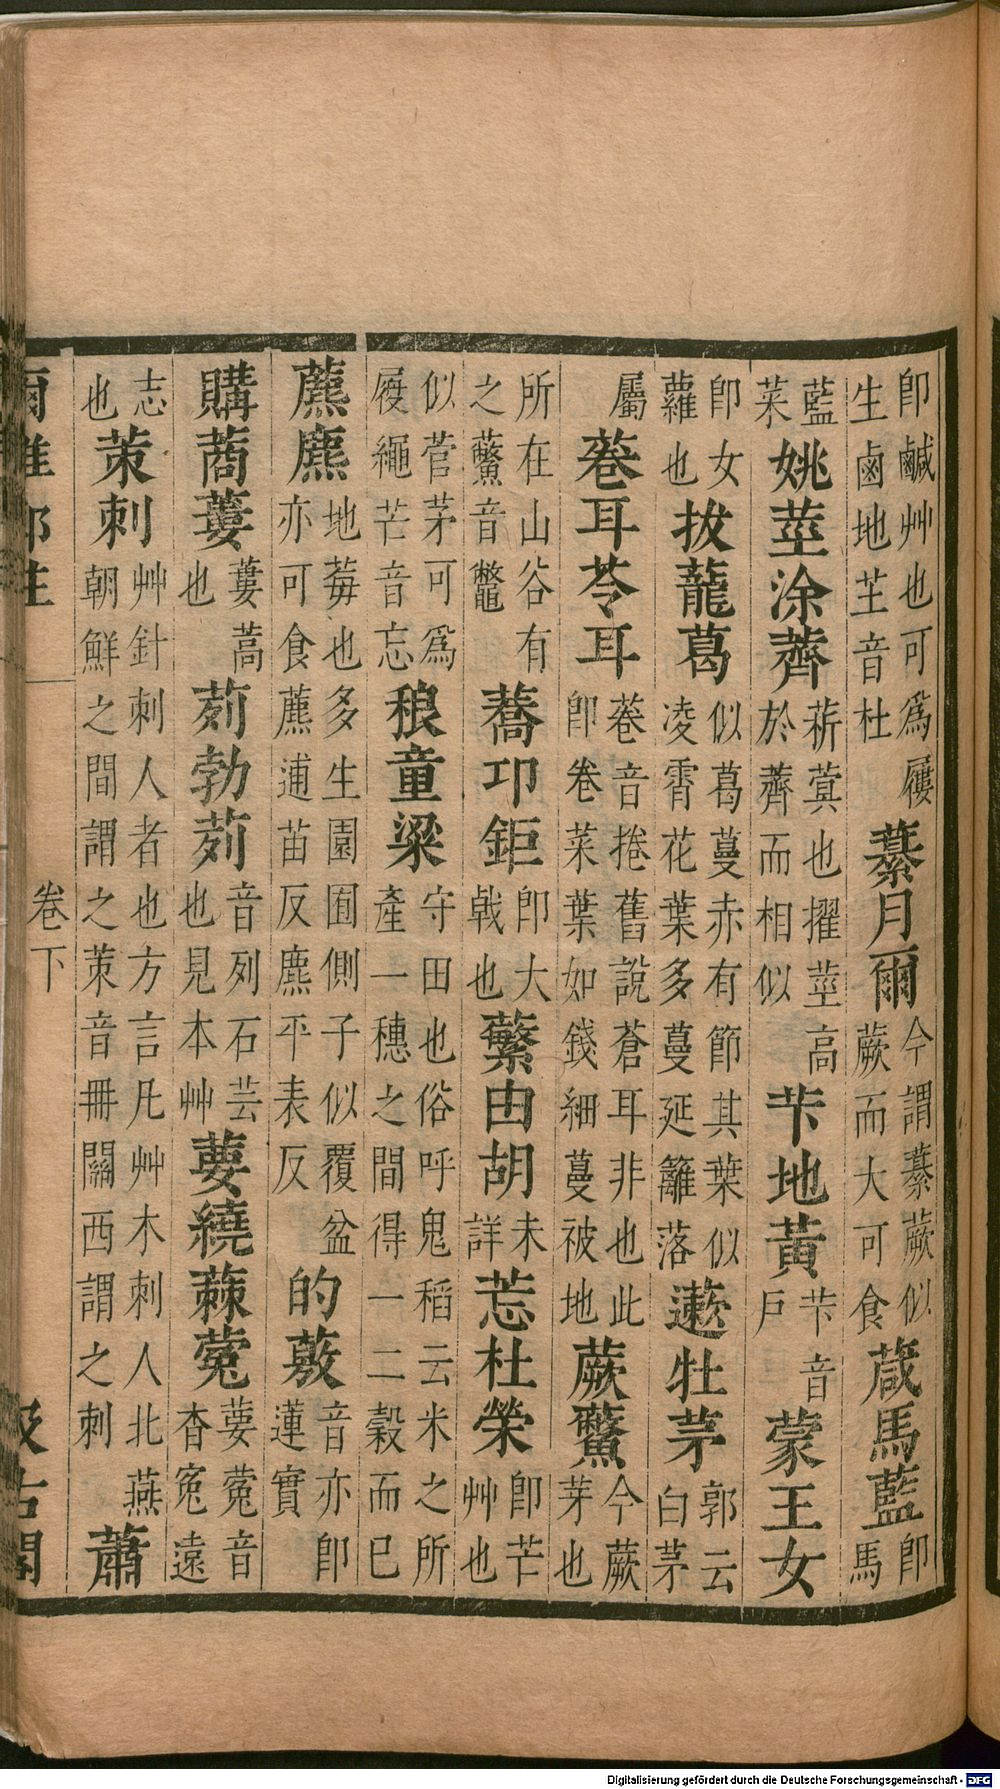 卽鹹艸也可爲屨生鹵地芏音杜藄月爾今謂藄蕨似蕨而大可食葴馬藍卽馬
藍菜姚莖涂薺菥蓂也擢莖高於薺而相似芐地黃芐音戶蒙王女
卽女蘿也拔蘢葛似葛蔓赤有節其葉似凌霄花葉多蔓延籬落遬牡茅郭云白茅
屬菤耳苓耳菤音捲舊說蒼耳非也此卽卷菜葉如錢細蔓被地蕨虌今蕨芽也
所在山谷有之虌音鼈蕎邛鉅卽大戟也蘩由胡未詳莣杜榮卽芒艸也
似菅茅可爲屐繩芒音忘稂童粱守田也俗呼鬼稻云米之所產一穗之間得一二穀而已
藨麃地莓也多生園囿側子似覆盆亦可食藨逋苗反麃平表反的薂音亦卽蓮實
購蔏蔞蔞蒿也茢勃茢音列石芸也見本艸葽繞蕀蒬葽蒬音杳寃遠
志也茦刺艸針刺人者也方言凡艸木刺人北燕朝鮮之間謂之茦音冊關西謂之刺蕭
爾雅鄭注
卷下
汲古閣
Digitalisierung gefördert durch die Deutsche Forschungsgemeinschaft - DFG